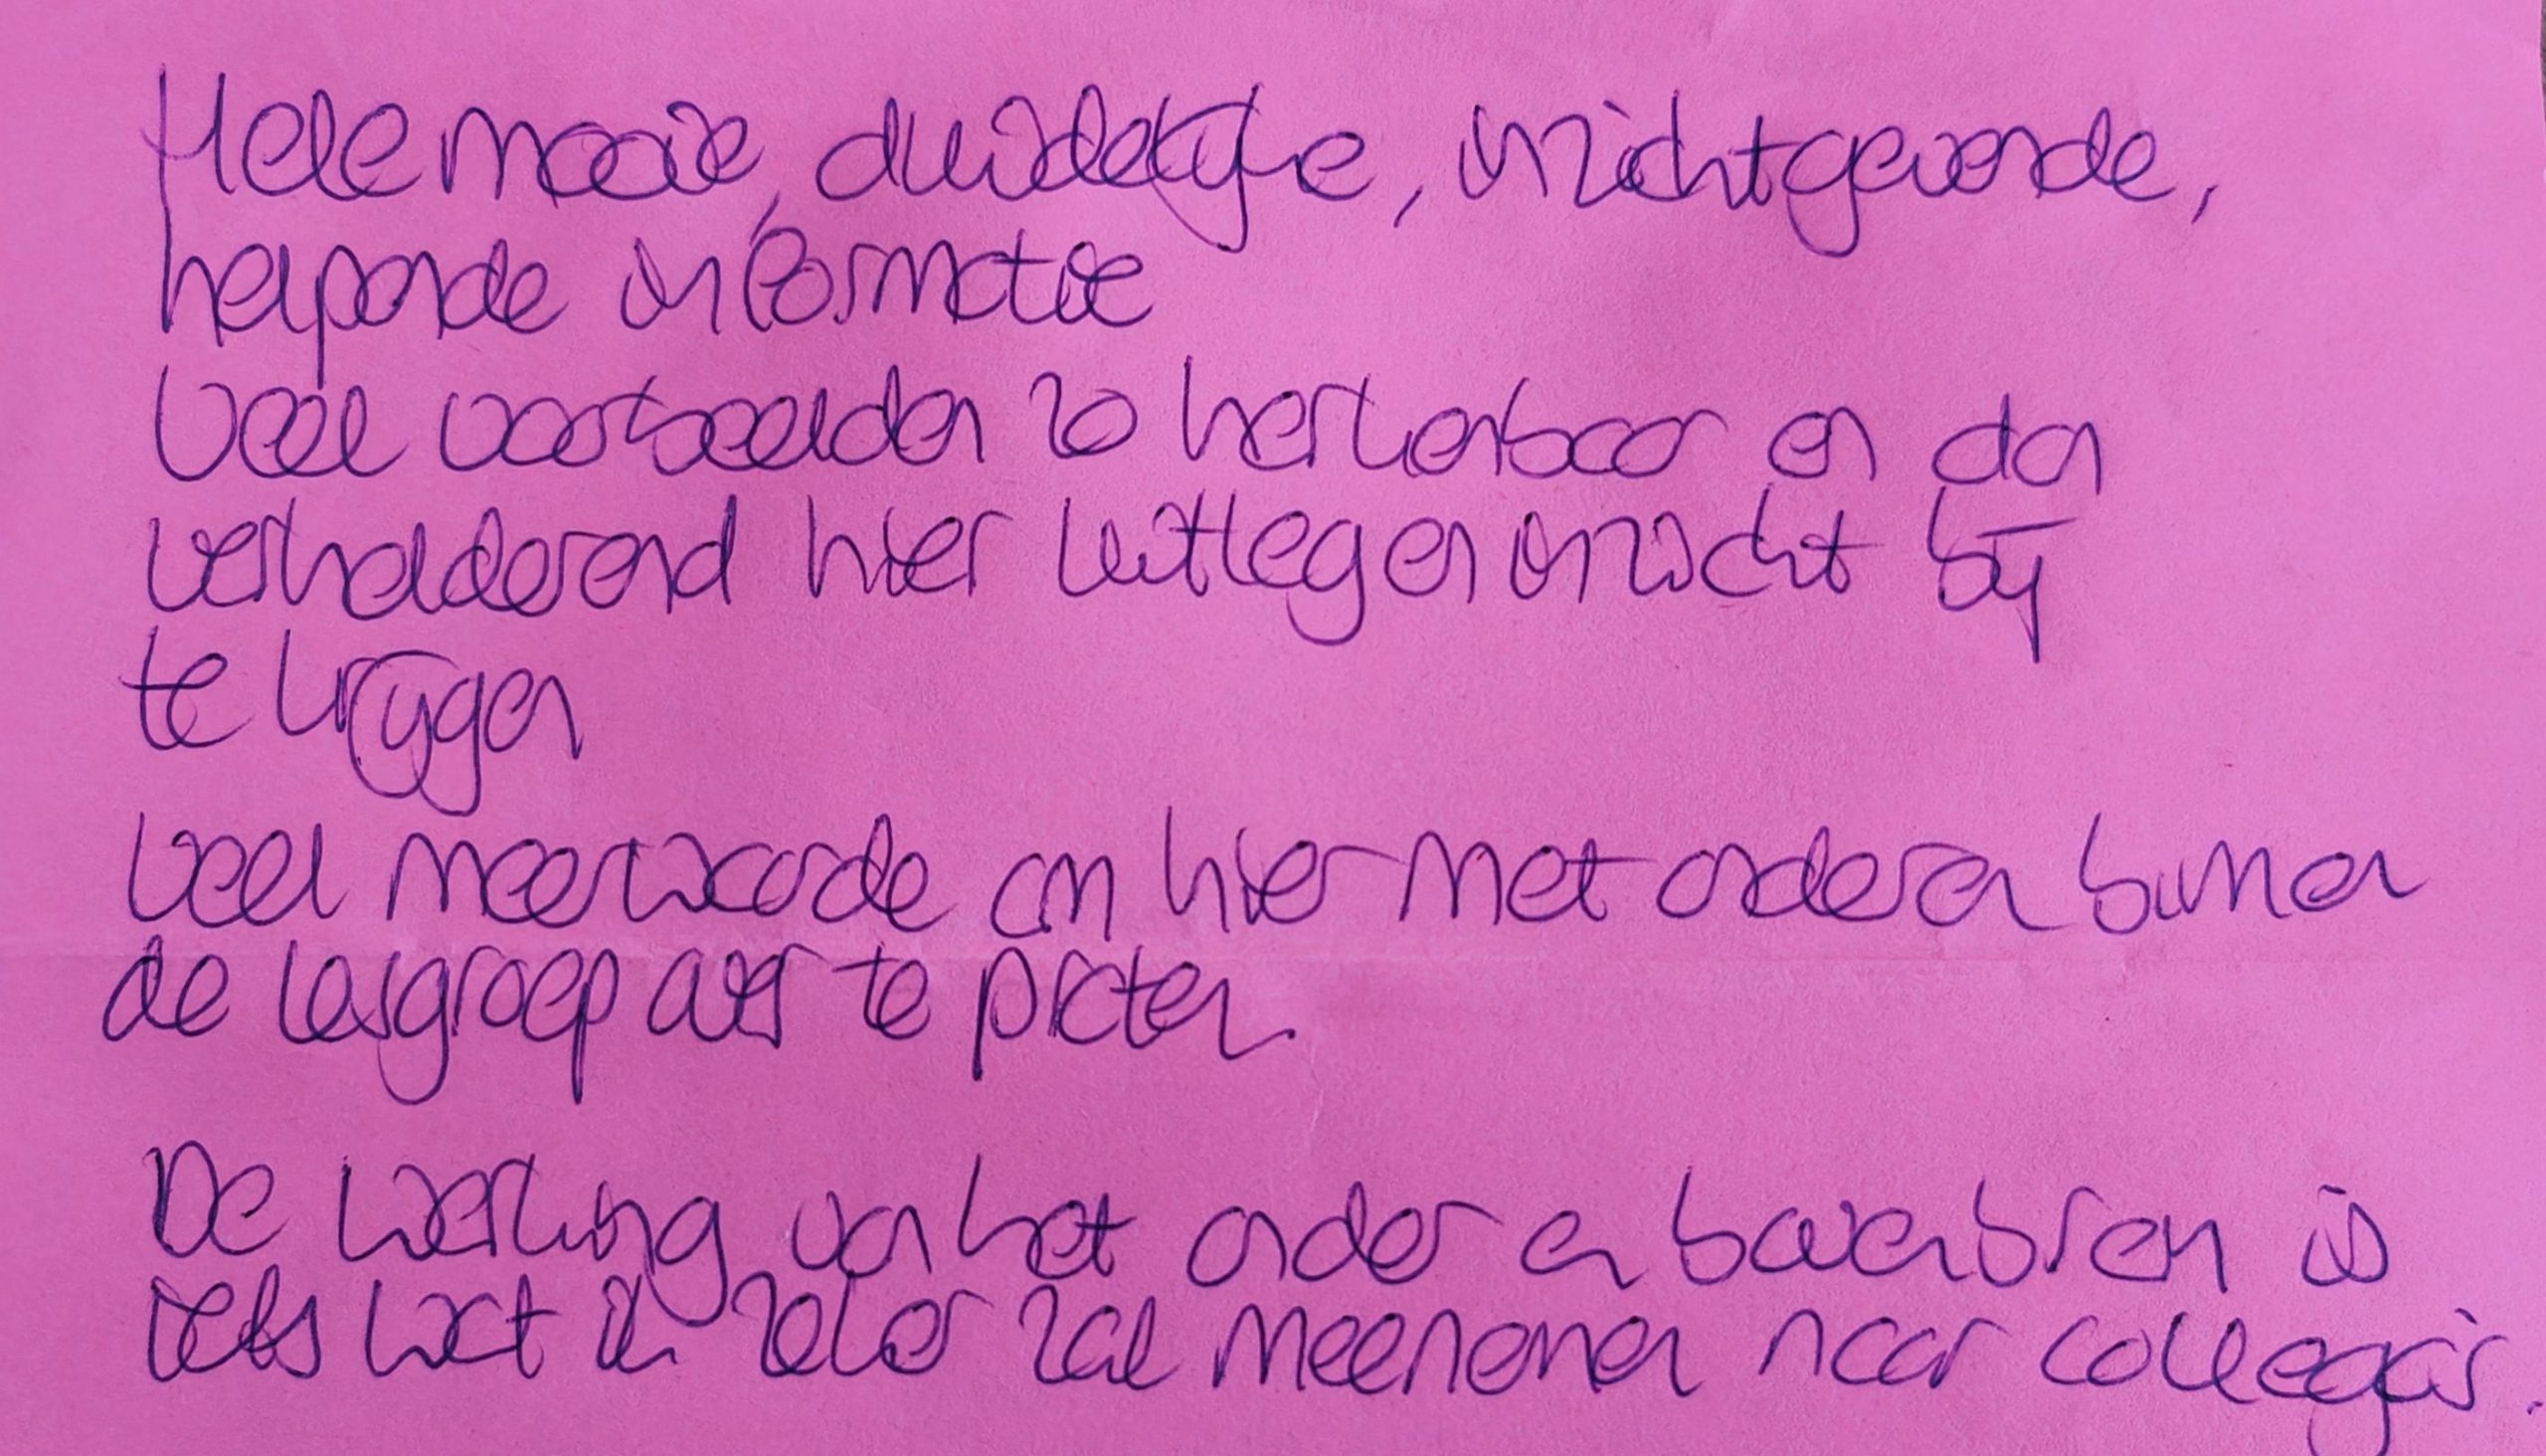 Hele mooie, duidelijke, inzichtgevende,
helpende informatie
Veel voorbeelden zo herkenbaar en dan
verhelderend hier uitleg en inzicht bij
te krijgen
Veel meerwaarde om hier met anderen binnen
de lesgroep over te praten.
De werking van het onder en bovenbrein is
iets wat ik zeker zal meenemen naar collega's.